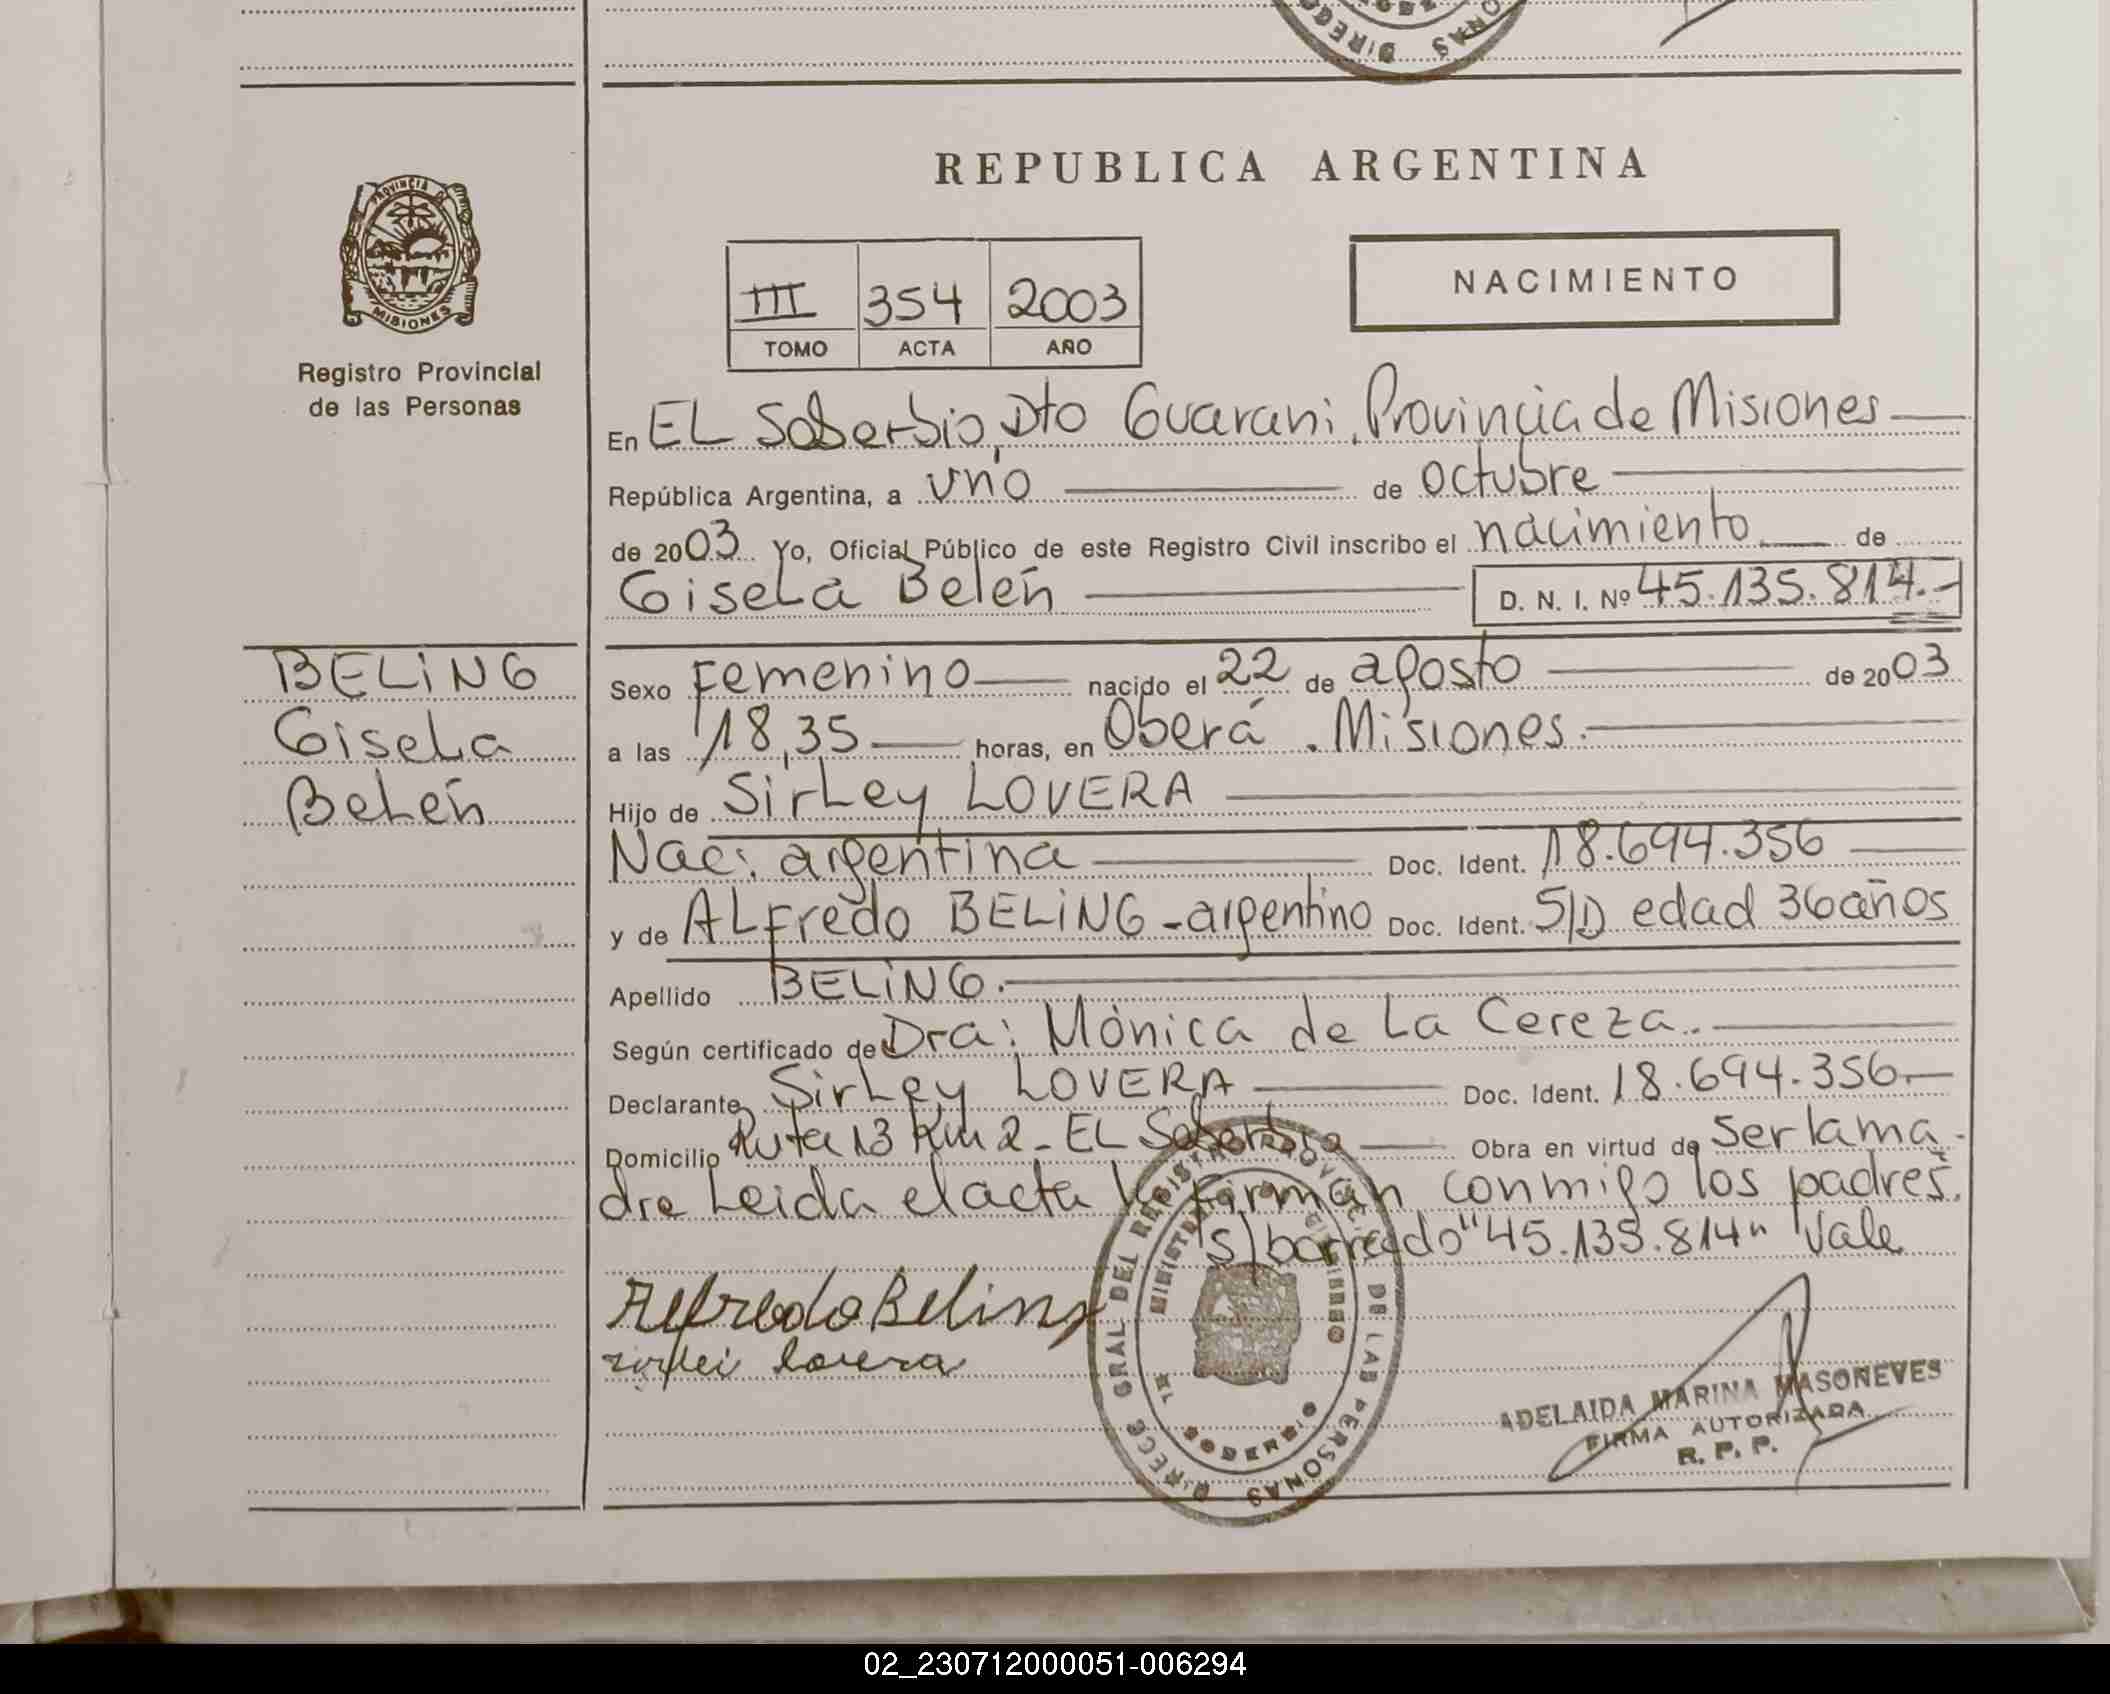 REPUBLICA ARGENTINA
PROVINCIA DE MISIONES
Registro Provincial
de las Personas
III 354 2003
TOMO ACTA AÑO
NACIMIENTO
En EL Soberbio, Dto Guarani, Provincia de Misiones
República Argentina, a uno de octubre
de 2003 Yo, Oficial Público de este Registro Civil inscribo el nacimiento de
Gisela Belén D. N. I. Nº 45.135.814.-
BELING
Gisela
Belén
Sexo Femenino nacido el 22 de agosto de 2003
a las 18,35 horas, en Oberá . Misiones.
Hijo de Sirley LOVERA
Nac: argentina Doc. Ident. 18.694.356
y de ALFredo BELING - argentino Doc. Ident. S/D edad 36 años
Apellido BELING.
Según certificado de Dra: Mónica de La Cereza.
Declarante Sirley LOVERA Doc. Ident. 18.694.356.-
Domicilio Ruta 13 Km 2 - EL Soberbio Obra en virtud de ser la ma-
dre Leida el acta la firman conmigo los padres.
s/borrado "45.135.814" Vale
Alfredo Beling
sirlei lovera
DIRECC GRAL DEL REGISTRO PROVINC. DE LAS PERSONAS
MINISTERIO DE GOBIERNO
SOBERBIO
ADELAIDA MARINA MASONEVES
FIRMA AUTORIZADA
R. P. P.
02_230712000051-006294